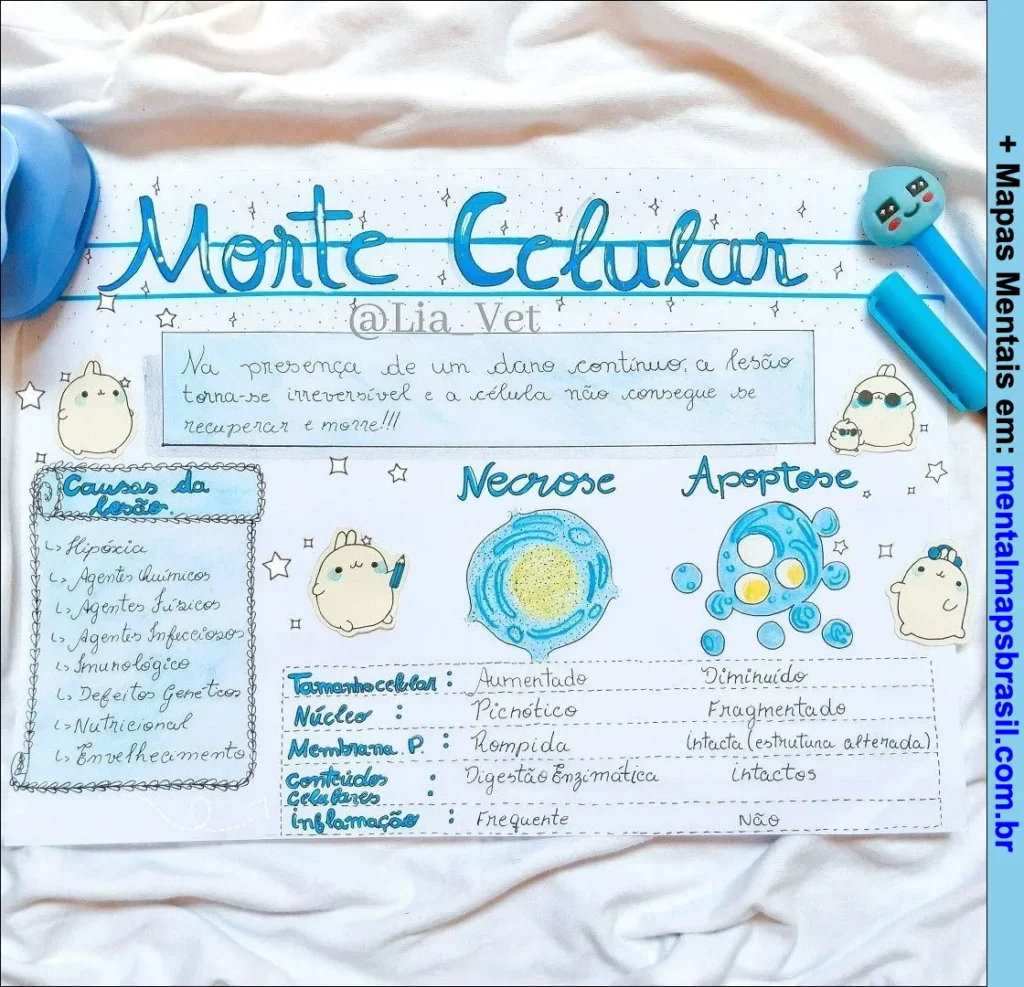 Morte Celular
@Lia_Vet
Na presença de um dano contínuo, a lesão
torna-se irreversível e a célula não consegue se
recuperar e morre!!!
Causas da
lesão.
Hipóxia
Agentes Químicos
Agentes Físicos
Agentes Infecciosos
Imunológico
Defeitos Genéticos
Nutricional
Envelhecimento
Necrose Apoptose
Tamanho celular : Aumentado Diminuído
Núcleo : Picnótico Fragmentado
Membrana P. : Rompida Intacta (estrutura alterada)
Conteúdos : Digestão Enzimática intactos
Celulares
inflamação : Frequente Não
+ Mapas Mentais em: mentalmapsbrasil.com.br